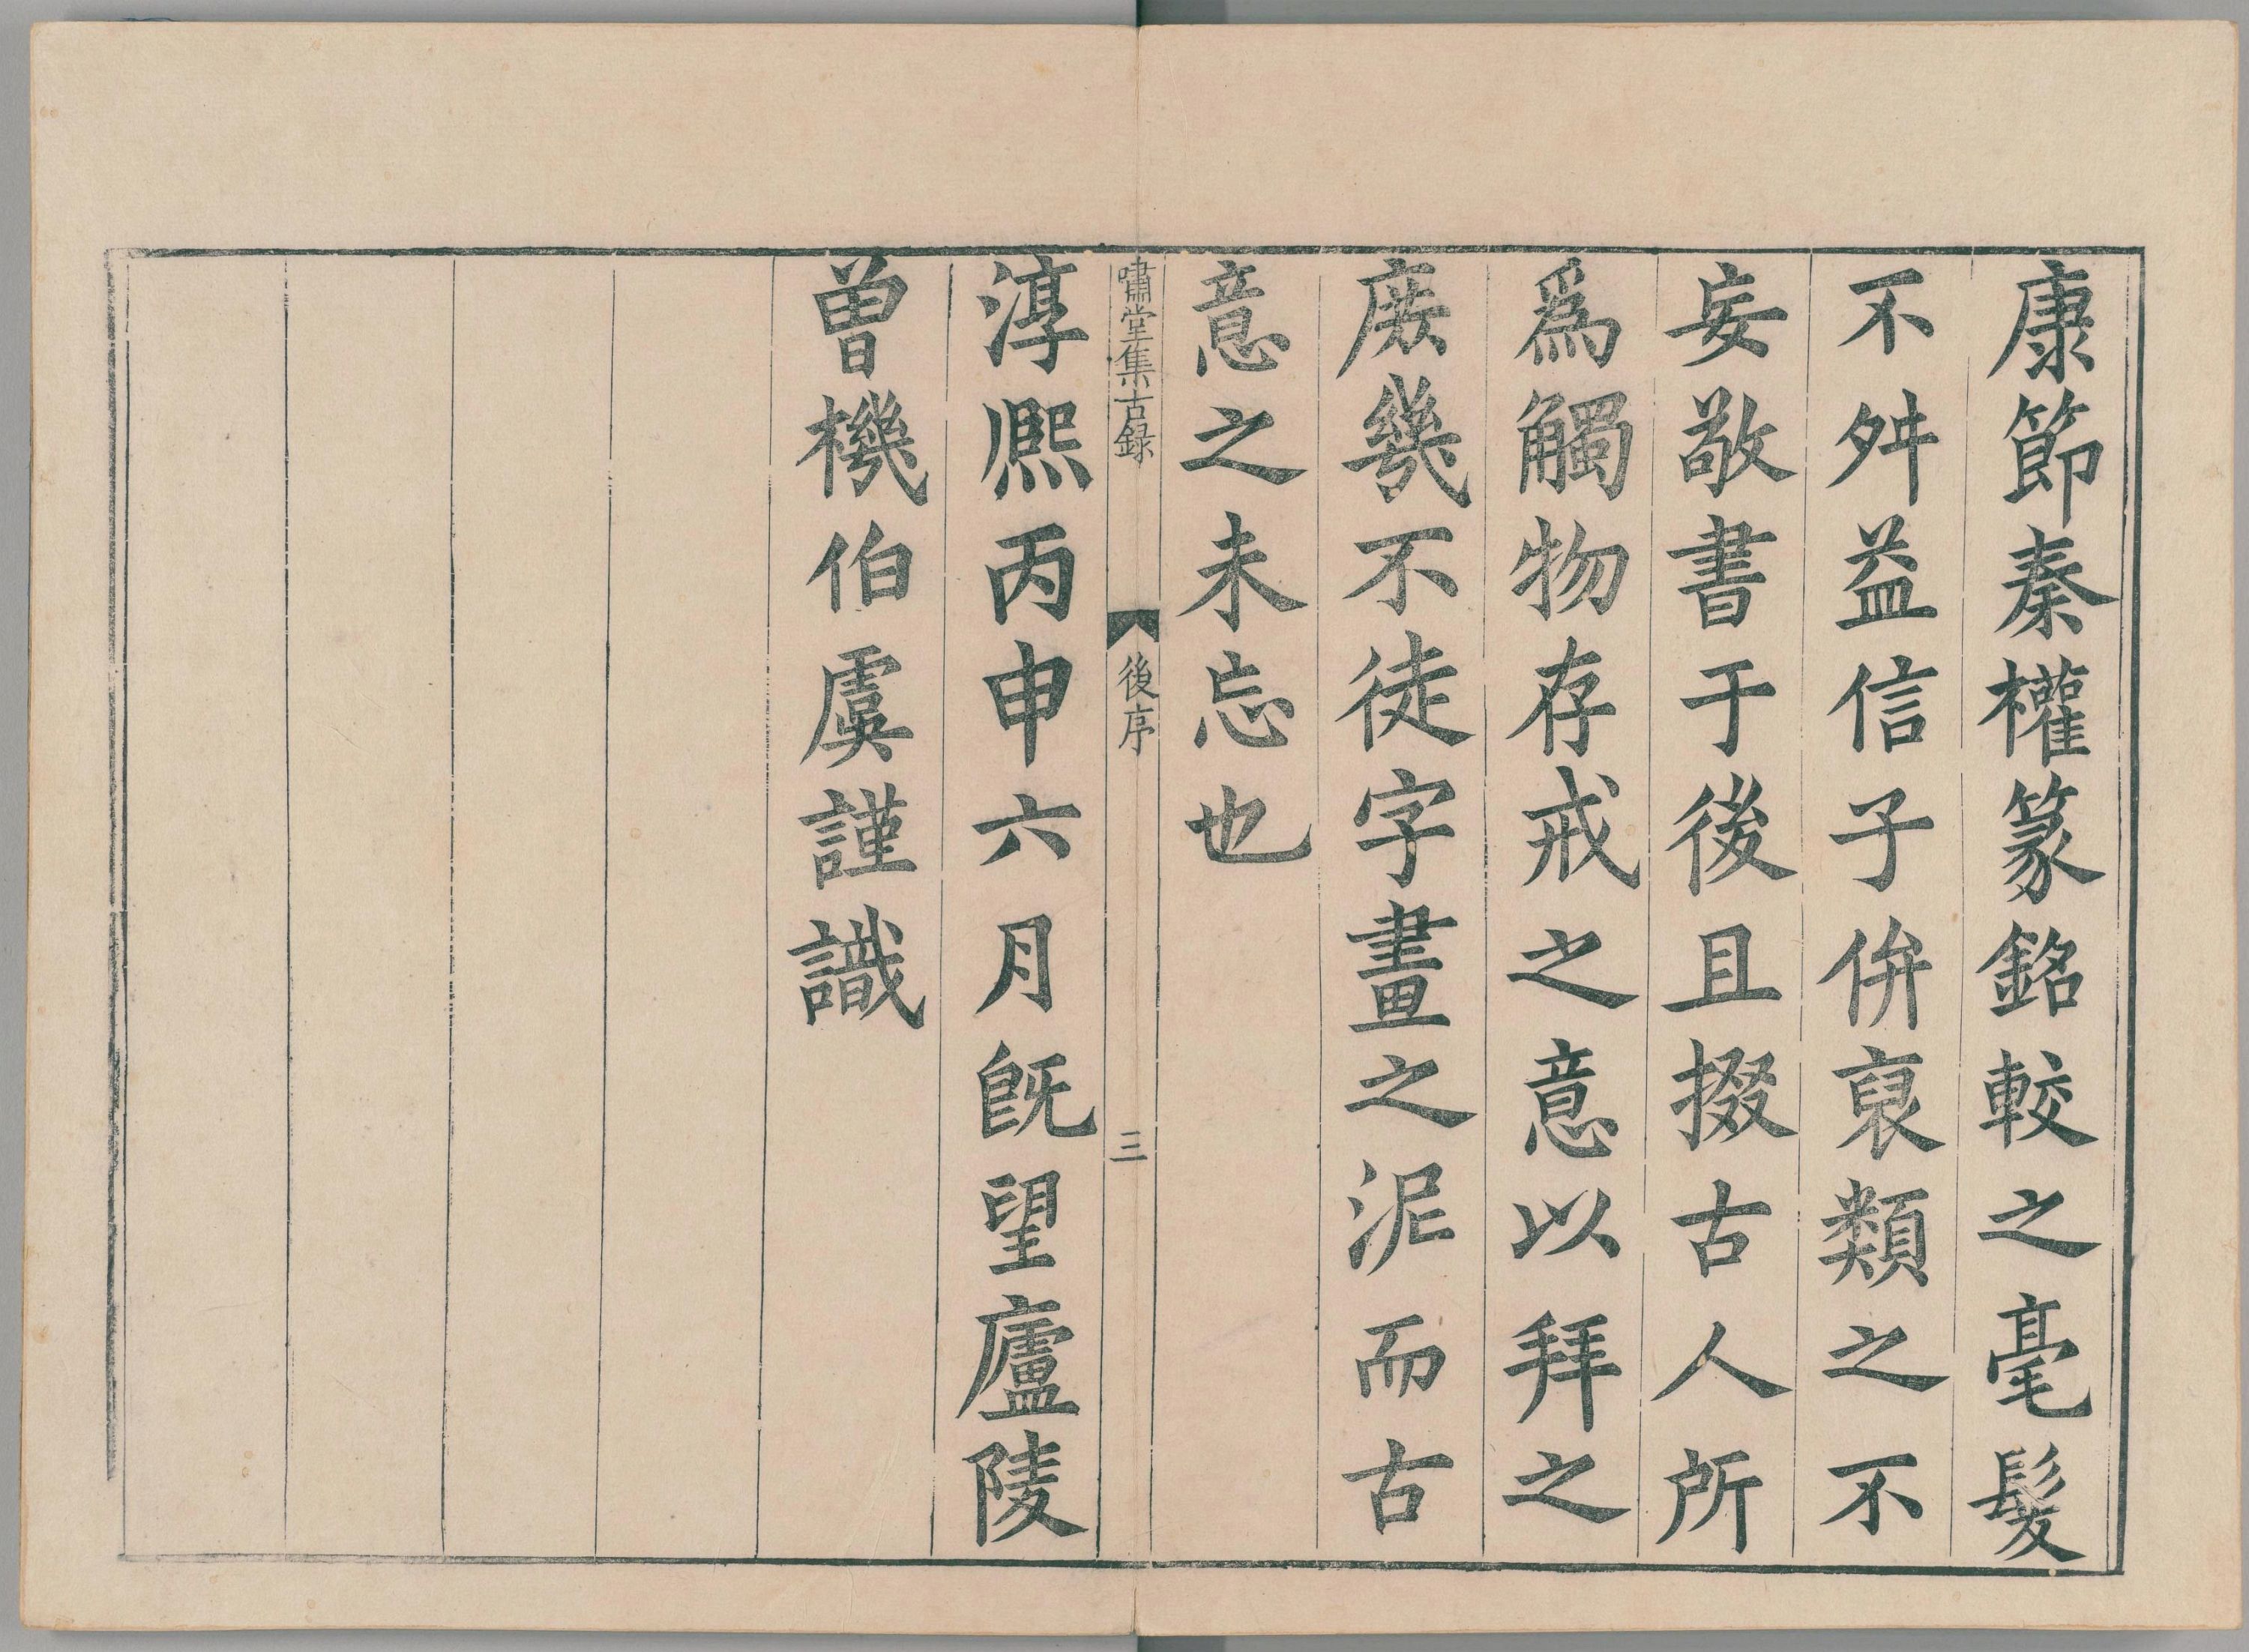 康節秦權篆銘較之毫髮
不舛益信子俌裒類之不
妄敬書于後且掇古人所
爲觸物存戒之意以拜之
庻幾不徒字畫之泥而古
意之未忘也
嘯堂集古録
後序
三
淳熈丙申六月旣望廬陵
曽機伯虞謹識